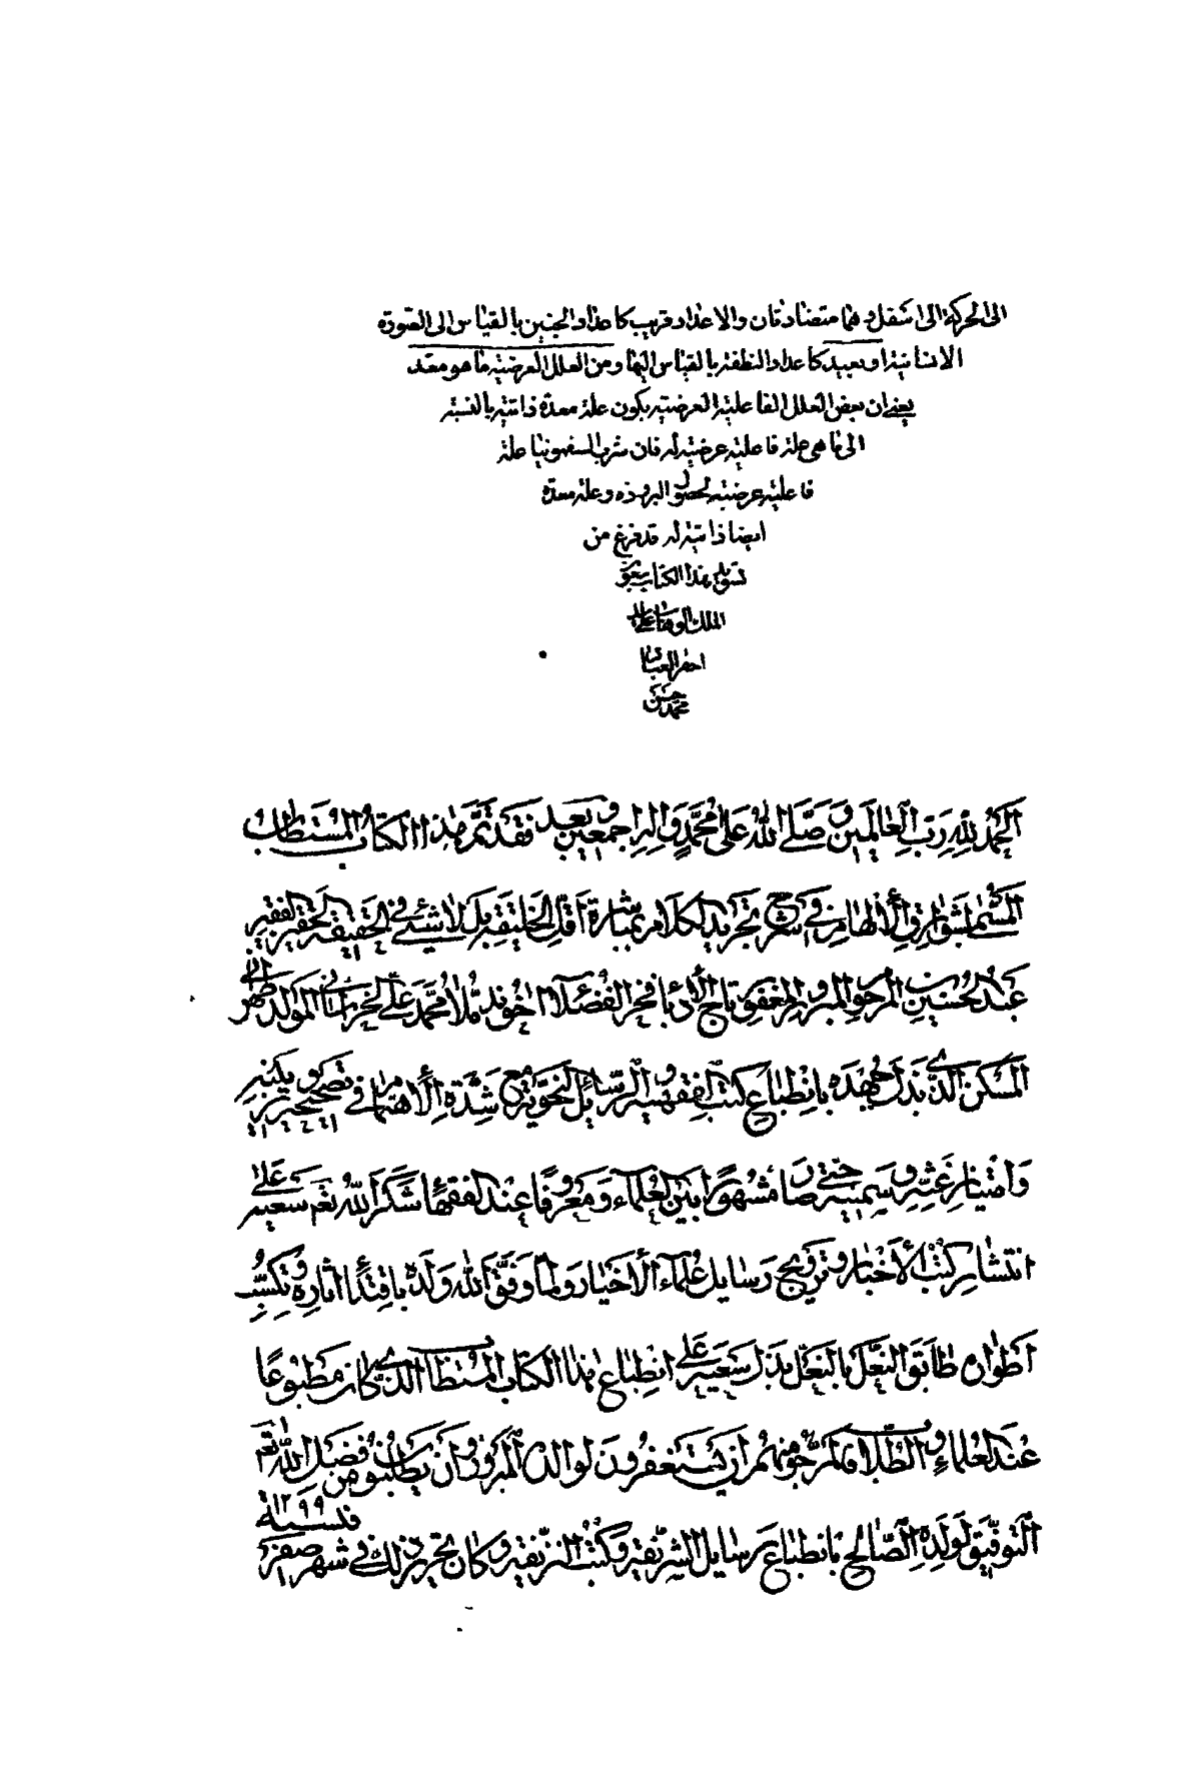 الى الحركة الى اسفل فهما متضادتان والاعداد قريب كاعداد الجنين بالقياس الى الصورة
الانسانية او بعيد كاعداد النطفة بالقياس اليها ومن العلل العرضية ما هو معد
يعنى ان بعض العلل الفاعلية العرضية يكون علة معدة ذاتية بالنسبة
الى ما هى علة فاعلية عرضية له فان شرب السقمونيا علة
فاعلية عرضية لحصول البرودة وعلة معدة
ايضا ذاتية له قد فرغ من
تسويد هذا الكتاب بتوفيق
الملك الوهاب على يد
احقر العباد
محمد حسن
اَلْحَمْدُ لِلّهِ رَبِّ الْعالَمينَ وَصَلَّى اللهُ عَلى مُحَمَّدٍ وَالِهِ اَجْمَعينَ وَبَعد فَقَدْ تَمَّ هذا الكتابُ المُسْتَطاب
المُسَمّى بشَوارِقِ الأِلْهامِ فى شرح تَجْرِيد الكَلامِ بمباشَرة اَقَلِّ الخَليقَةِ بَل لا شَيْئ فى الحَقيقَة الحَقير الفَقير
عبد الحُسَين بن المرحوم المبرور المغفور تاج الأدبا فخر الفُضَلاء اخوند مُلّا مُحَمَّد عَلى الخراسانى المَولد طهرانى
المَسكَن الَّذى بَذَلَ جُهْدَه بانْطِباعِ كُتُب الفِقهيَّة والرَّسائِل النحويَّة مع شِدَّة الأِهتمام فى تَصحيحِه وتكثيرِ
وَامْتيازِ غَثِّه وسَمينِه حتّى صار مَشهورًا بَيْنَ العُلَماء وَمَعْرُوفًا عِنْدَ الفقهاء شَكَرَ اللهُ تعم سَعيَه عَلى
انتشارِ كُتُب الأخبارِ وتَرْويج رَسايل عُلَمآء الأخيار ولما وفَّقَ الله وَلَدَه باقتداء اثارِه وتكسُّبِ
اَطْوارِه طابَقَ النَّعل بالنَّعل بَذَل سَعيَه عَلى انطباع هذا الكتاب المُستَطاب الّذى كان مَطبُوعًا
عِنْدَ العُلماءِ والطّلاب فالمَرجو منهُم اَن يَسْتَغفِرُونَ لوالده المبرُور وَاَن يَطْلُبُو مِن فَضْل الله تعم
التَّوفيقَ لِوَلَدِه الصّالح بانطباع رسايل الشَّريفةِ وكُتُب النَّزيفةِ وكان تحرير ذلك فى شهر صفر
فى سنة ١٢٩٩